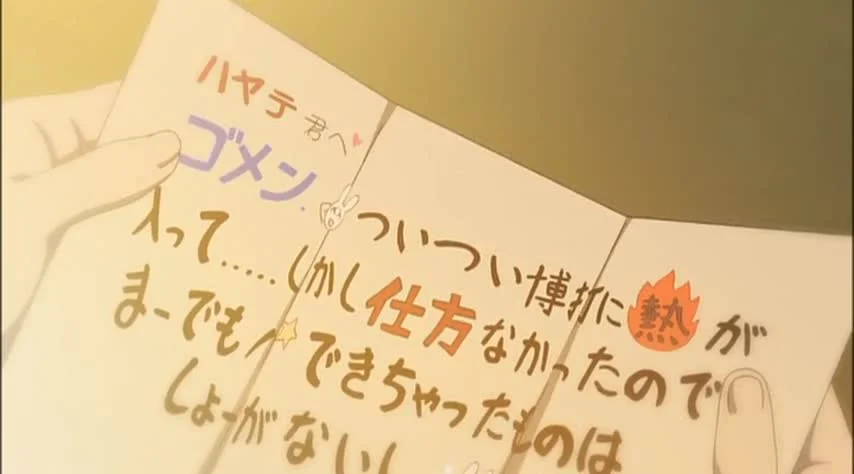 ハヤテ君へ♥
ゴメン.
ついつい博打に熱が
入って.....しかし仕方なかったので
まーでも⭐できちゃったものは
しょーがないし